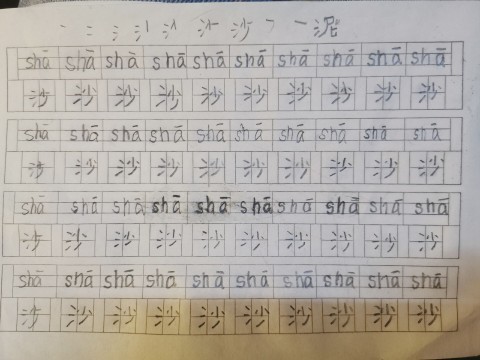 沙 一 泥
shā shā shà shā shā shā shā shā shā shā
沙 沙 沙 沙 沙 沙 沙 沙 沙 沙
shā shā shā shā shā shā shā shā shā shā
沙 沙 沙 沙 沙 沙 沙 沙 沙 沙
shā shā shā shā shā shā shā shā shā shā
沙 沙 沙 沙 沙 沙 沙 沙 沙 沙
shā shā shā shā shā shā shā shā shā shā
沙 沙 沙 沙 沙 沙 沙 沙 沙 沙